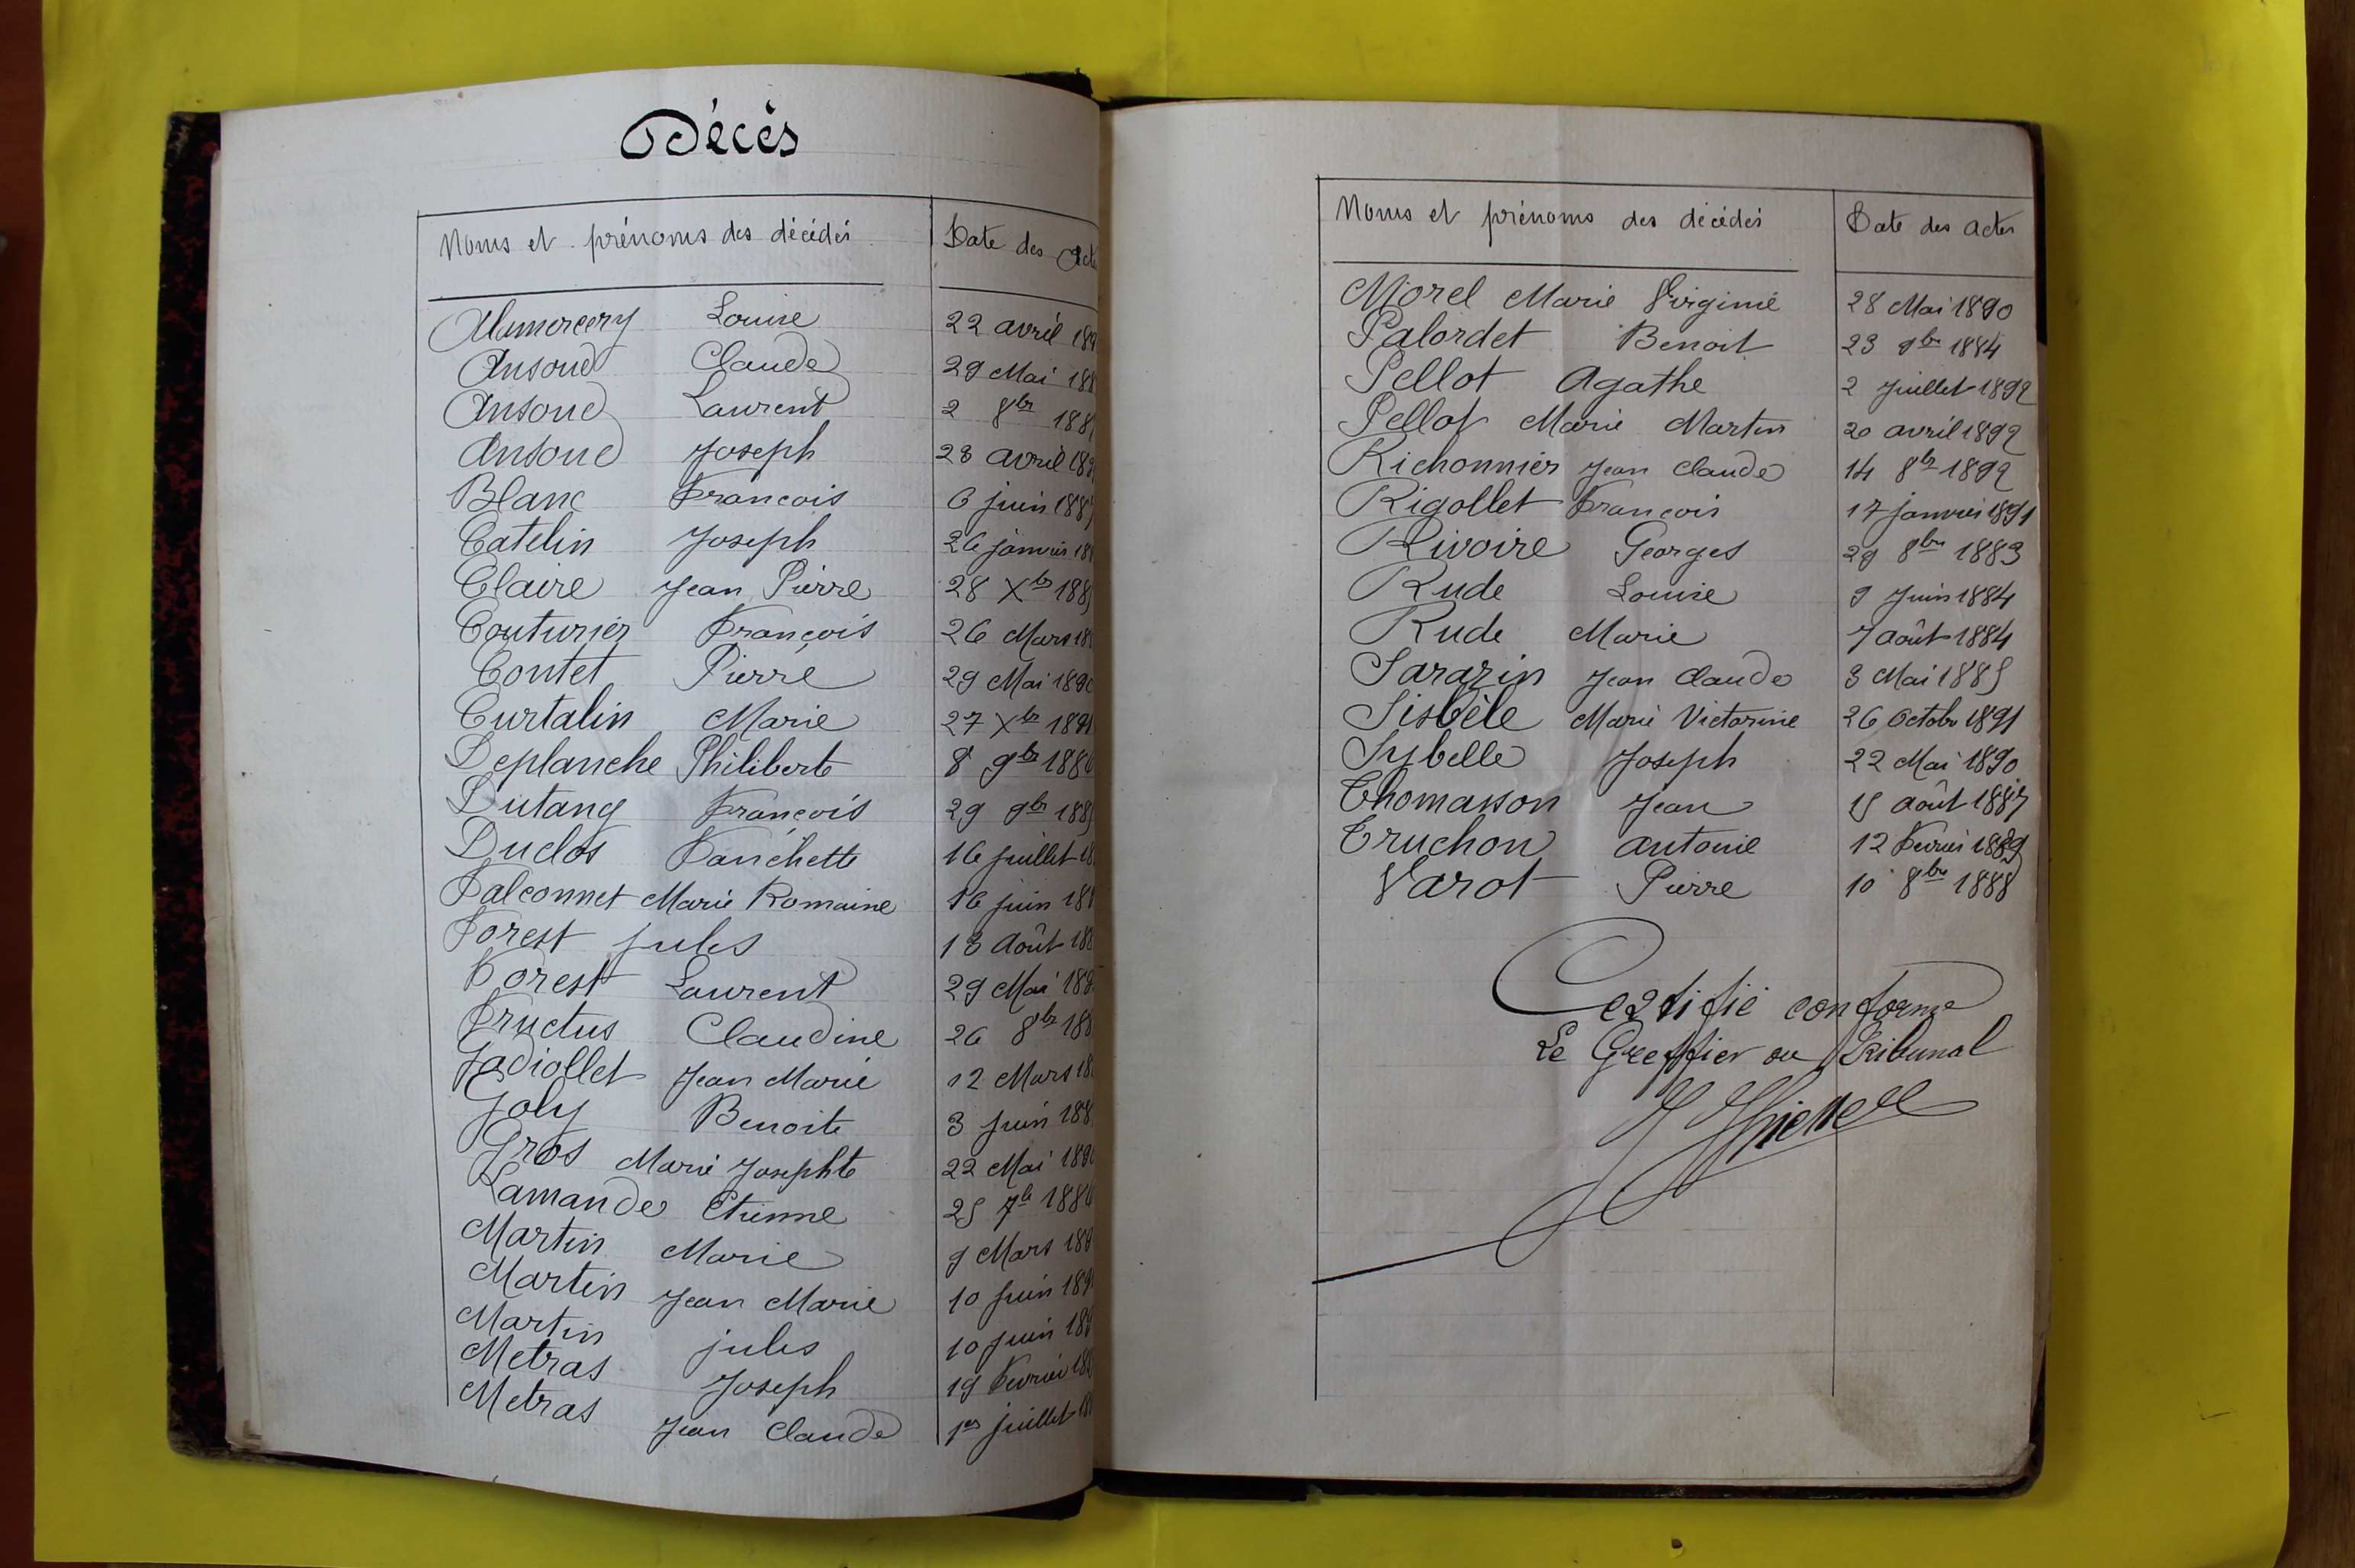 Décès
Noms et prénoms des décédés Date des Act
Alamercery Louise 22 avril 189
Ansoud Claude 29 Mai 188
Ansoud Laurent 2 8bre 188
Ansoud Joseph 28 avril 189
Blanc Francois 6 juin 188
Catelin Joseph 26 janvier 18
Claire Jean Pierre 28 Xbre 188
Couturier François 26 Mars 18
Coutet Pierre 29 Mai 1890
Curtalin Marie 27 Xbre 1891
Deplanche Philiberte 8 9bre 1886
Dutang François 29 9bre 188
Duclos Fanchette 16 juillet 18
Falconnet Marie Romaine 16 juin 18
Forest jules 13 Août 188
Forest Laurent 29 Mai 189
Fructus Claudine 26 8bre 188
Gadiollet Jean Marie 12 Mars 18
Goly Benoite 3 Juin 188
Gros Marie Josephte 22 Mai 189
Lamande Etienne 25 7b 1886
Martin Marie 9 Mars 188
Martin Jean Marie 10 juin 189
Martin jules 10 juin 18
Metras Joseph 19 Fevrier 18
Metras Jean Claude 1er juillet 18
Noms et prénoms des décédés Date des actes
Morel Marie Virginie 28 Mai 1890
Palordet Benoit 23 9bre 1884
Pellot Agathe 2 Juillet 1892
Pellot Marie Martin 20 avril 1892
Richonnier Jean Claude 14 8bre 1892
Rigollet Francois 17 janvier 1891
Rivoire Georges 29 8bre 1883
Rude Louise 9 Juin 1884
Rude Marie 7 août 1884
Sarazin Jean Claude 3 Mai 1885
Sisbèle Marie Victorine 26 Octobre 1891
Sybelle Joseph 22 Mai 1890
Thomasson Jean 15 août 1887
Truchon Antoine 12 Fevrier 1889
Varot Pierre 10 8bre 1888
Certifié conforme
Le Greffier du Tribunal